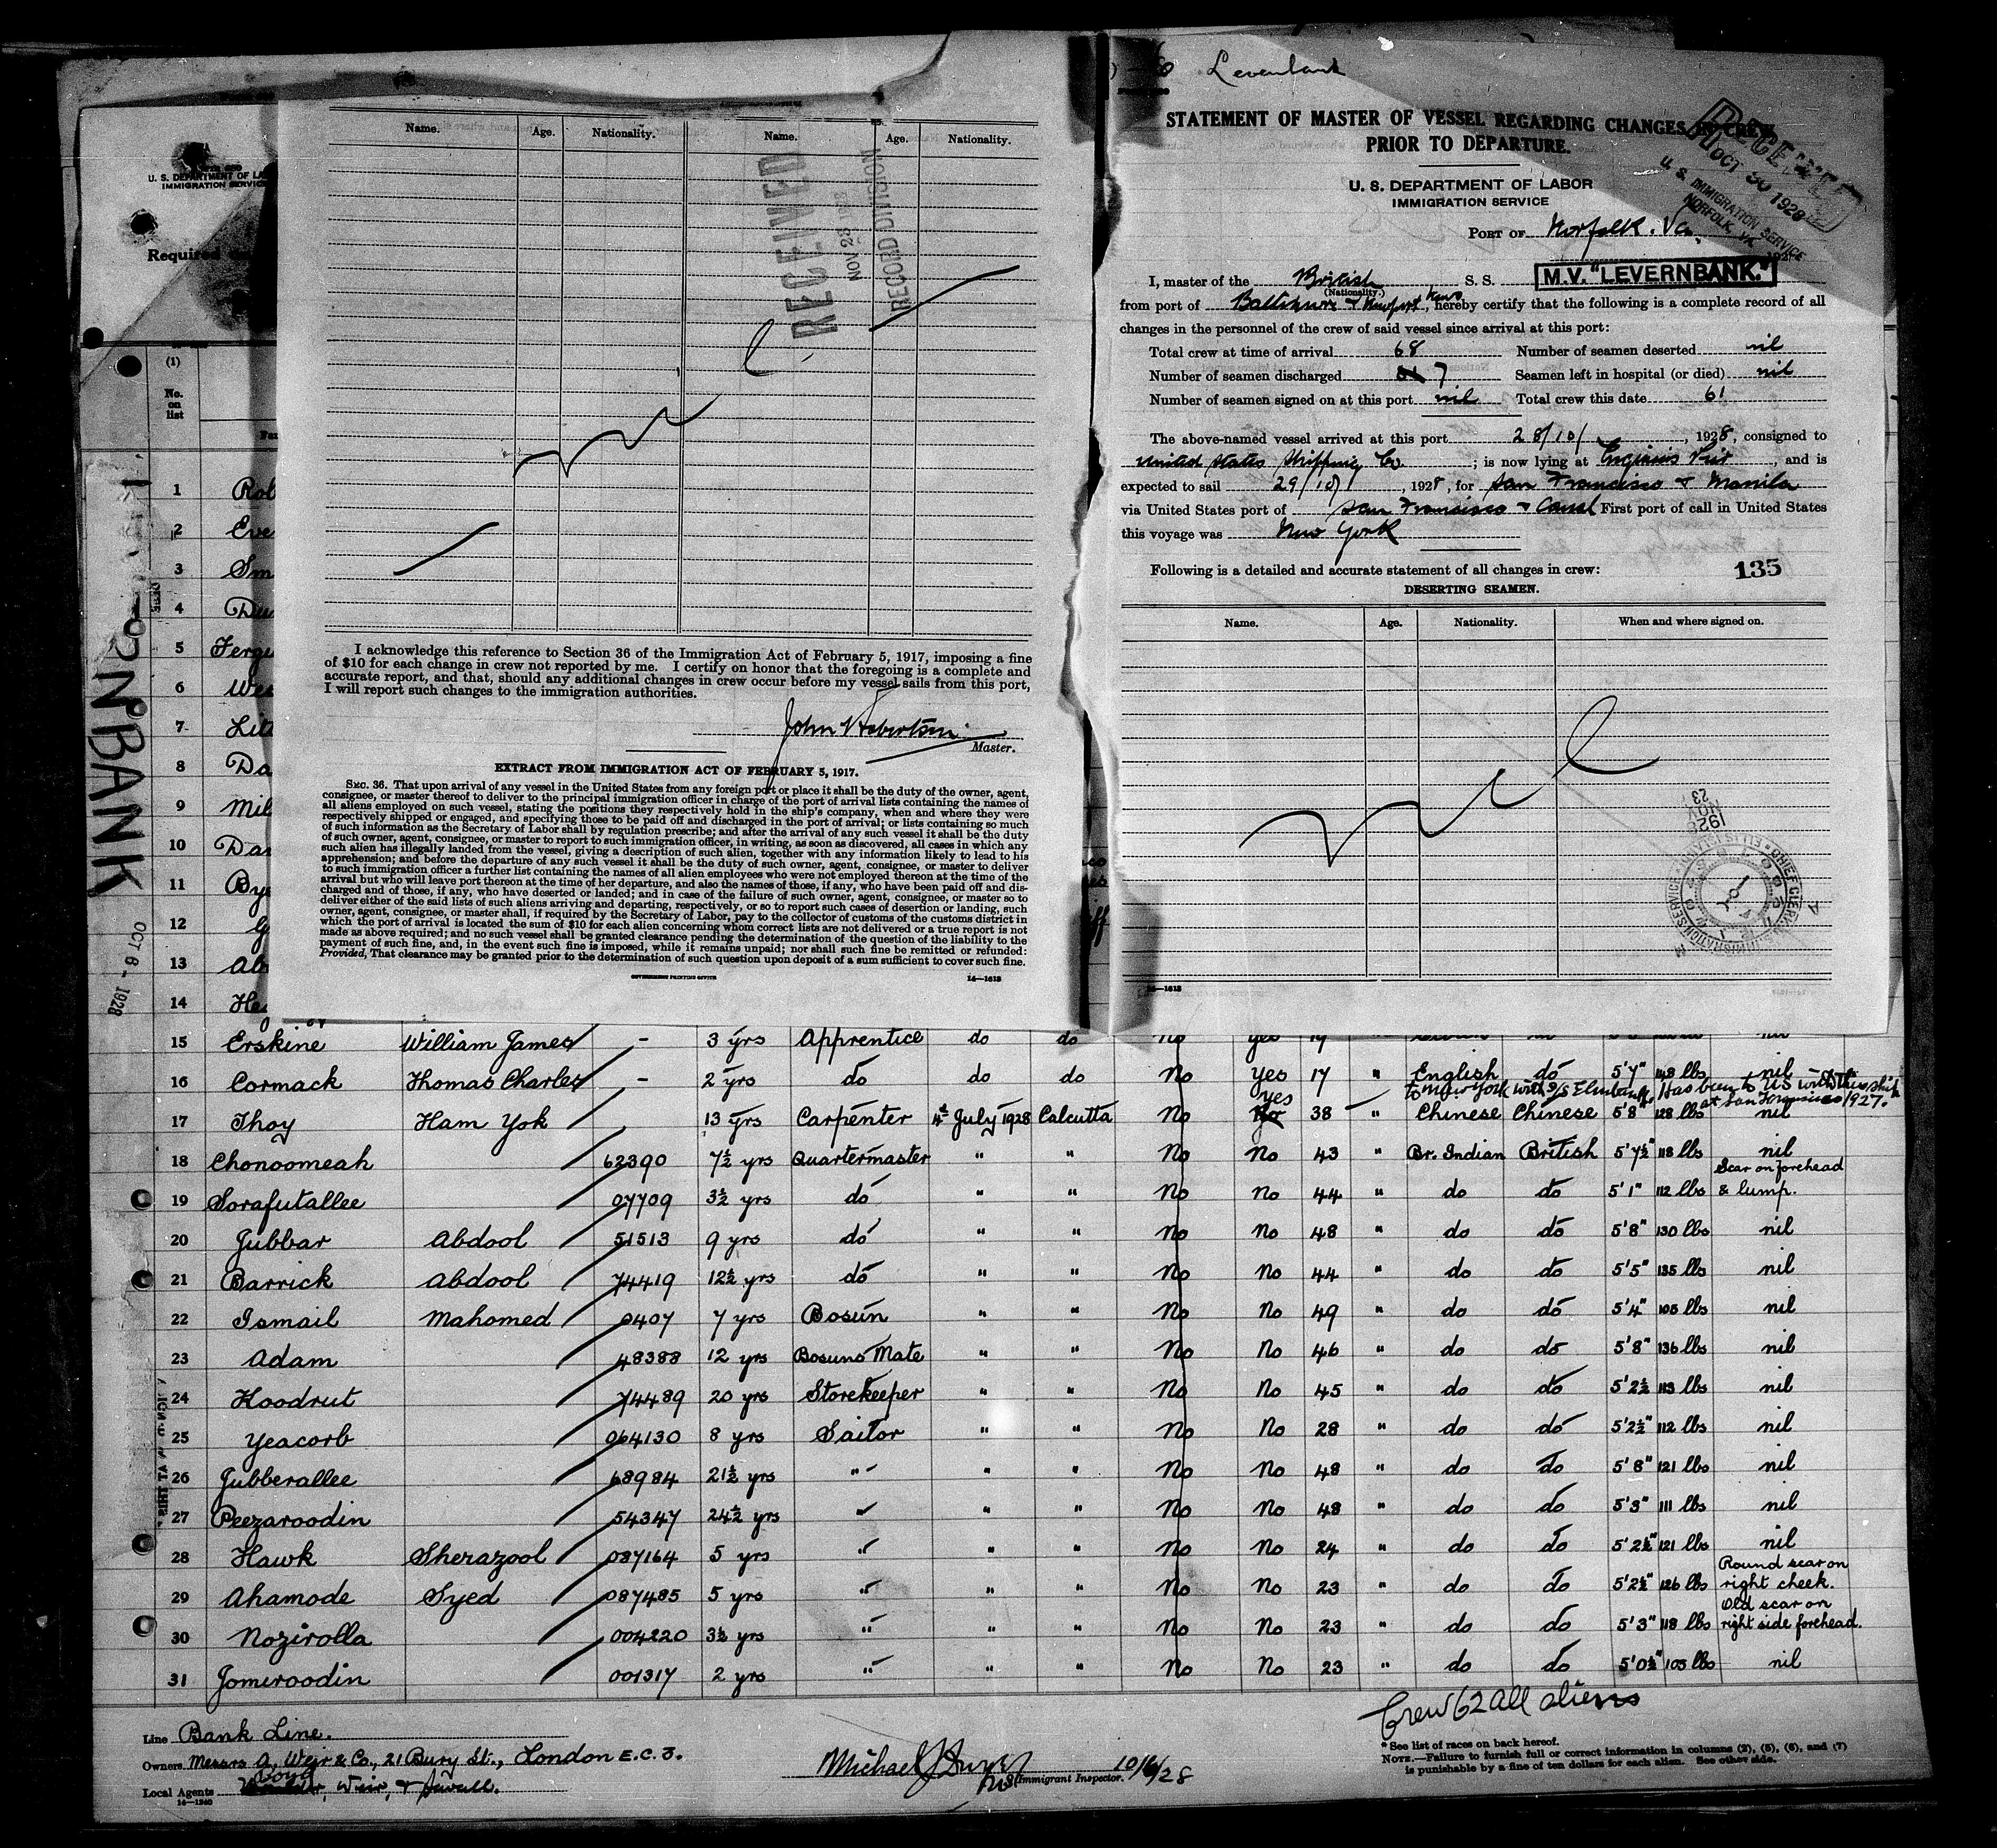 Levernbank
Name. Age. Nationality. Name. Age. Nationality.
RECEIVED
NOV 23 1928
RECORD DIVISION
nil
I acknowledge this reference to Section 36 of the Immigration Act of February 5, 1917, imposing a fine
of $10 for each change in crew not reported by me. I certify on honor that the foregoing is a complete and
accurate report, and that, should any additional changes in crew occur before my vessel sails from this port,
I will report such changes to the immigration authorities.
John Robertson
Master.
EXTRACT FROM IMMIGRATION ACT OF FEBRUARY 5, 1917.
SEC. 36. That upon arrival of any vessel in the United States from any foreign port or place it shall be the duty of the owner, agent,
consignee, or master thereof to deliver to the principal immigration officer in charge of the port of arrival lists containing the names of
all aliens employed on such vessel, stating the positions they respectively hold in the ship's company, when and where they were
respectively shipped or engaged, and specifying those to be paid off and discharged in the port of arrival; or lists containing so much
of such information as the Secretary of Labor shall by regulation prescribe; and after the arrival of any such vessel it shall be the duty
of such owner, agent, consignee, or master to report to such immigration officer, in writing, as soon as discovered, all cases in which any
such alien has illegally landed from the vessel, giving a description of such alien, together with any information likely to lead to his
apprehension; and before the departure of any such vessel it shall be the duty of such owner, agent, consignee, or master to deliver
to such immigration officer a further list containing the names of all alien employees who were not employed thereon at the time of the
arrival but who will leave port thereon at the time of her departure, and also the names of those, if any, who have been paid off and dis-
charged and of those, if any, who have deserted or landed; and in case of the failure of such owner, agent, consignee, or master so to
deliver either of the said lists of such aliens arriving and departing, respectively, or so to report such cases of desertion or landing, such
owner, agent, consignee, or master shall, if required by the Secretary of Labor, pay to the collector of customs of the customs district in
which the port of arrival is located the sum of $10 for each alien concerning whom correct lists are not delivered or a true report is not
made as above required; and no such vessel shall be granted clearance pending the determination of the question of the liability to the
payment of such fine, and, in the event such fine is imposed, while it remains unpaid; nor shall such fine be remitted or refunded:
Provided, That clearance may be granted prior to the determination of such question upon deposit of a sum sufficient to cover such fine.
GOVERNMENT PRINTING OFFICE 14—1613
STATEMENT OF MASTER OF VESSEL REGARDING CHANGES IN CREW
PRIOR TO DEPARTURE.
U. S. DEPARTMENT OF LABOR
IMMIGRATION SERVICE
RECEIVED
OCT 30 1928
U. S. IMMIGRATION SERVICE
NORFOLK, VA
PORT OF Norfolk. Va.
I, master of the British S. S. M.V. "LEVERNBANK."
(Nationality.)
from port of Baltimore & Newport News, hereby certify that the following is a complete record of all
changes in the personnel of the crew of said vessel since arrival at this port:
Total crew at time of arrival 68 Number of seamen deserted nil
Number of seamen discharged 7 Seamen left in hospital (or died) nil
Number of seamen signed on at this port nil Total crew this date 61
The above-named vessel arrived at this port 28/10/, 1928, consigned to
United States Shipping Co.; is now lying at, and is
expected to sail 29/10/, 1928, for San Francisco & Manila
via United States port of San Francisco & Canal First port of call in United States
this voyage was New York
Following is a detailed and accurate statement of all changes in crew: 135
DESERTING SEAMEN.
Name. Age. Nationality. When and where signed on.
nil
NOV 23 1928
CHIEF CLERK
U.S. IMMIGRATION SERVICE
14—1613
U. S. DEPARTMENT OF LA
IMMIGRATION SERVICE
Required
(1)
No. on list
BANK
OCT 6 - 1928
1 Rob
2 Eve
3 Sm
4 Du
5 Fergu
6 Wes
7 Lit
8 Da
9 Mil
10 Dav
11 Bye
12 G
13 Ab
14 He
15 Erskine William James - 3 yrs Apprentice do do No Yes 19
16 Cormack Thomas Charles - 2 yrs do do do No Yes 17 " English do 5'7" 148 lbs nil
to New York with S/S Elmbank. Has been to US with this ship at San Francisco 1927.
17 Thoy Ham Yok 13 yrs Carpenter 4th July 1928 Calcutta No Yes 38 " Chinese Chinese 5'8" 128 lbs nil
18 Chonoomeah 62390 7½ yrs Quartermaster " " No No 43 " Br. Indian British 5'7½" 118 lbs nil
19 Sorafutallee 07709 3½ yrs do " " No No 44 " do do 5'1" 112 lbs Scar on forehead & lump.
20 Jubbar Abdool 51513 9 yrs do " " No No 48 " do do 5'8" 130 lbs nil
21 Barrick Abdool 74419 12½ yrs do " " No No 44 " do do 5'5" 135 lbs nil
22 Ismail Mahomed 0407 7 yrs Bosun " " No No 49 " do do 5'4" 105 lbs nil
23 Adam 48388 12 yrs Bosuns Mate " " No No 46 " do do 5'8" 136 lbs nil
24 Hoodrut 74489 20 yrs Storekeeper " " No No 45 " do do 5'2½ 113 lbs nil
25 Yeacorb 064130 8 yrs Sailor " " No No 28 " do do 5'2½" 112 lbs nil
26 Jubberallee 68984 21½ yrs " " " No No 48 " do do 5'8" 121 lbs nil
27 Peezaroodin 54347 24½ yrs " " " No No 48 " do do 5'3" 111 lbs nil
28 Hawk Sherazool 087164 5 yrs " " " No No 24 " do do 5'2½" 121 lbs nil
29 Ahamode Syed 087485 5 yrs " " " No No 23 " do do 5'2½" 126 lbs Round scar on right cheek.
30 Nozirolla 004220 3½ yrs " " " No No 23 " do do 5'3" 118 lbs Old scar on right side forehead.
31 Jomeroodin 001317 2 yrs " " " No No 23 " do do 5'0½" 105 lbs nil
Crew 62 all aliens
Line Bank Line.
Owners Messrs A. Weir & Co., 21 Bury St., London E.C.3.
Local Agents Boyd, Weir, & Sewell.
14—1240
Immigrant Inspector. 10/6/28
* See list of races on back hereof.
NOTE.—Failure to furnish full or correct information in columns (2), (5), (6), and (7)
is punishable by a fine of ten dollars for each alien. See other side.